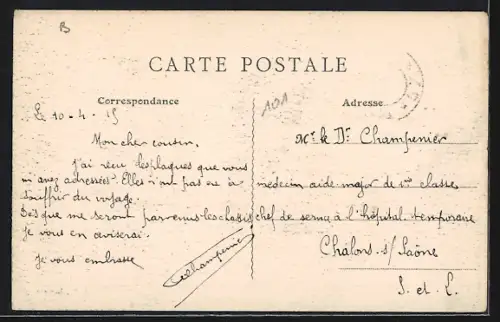 B
CARTE POSTALE
Correspondance
101
Adresse
Le 10-4-15
Mon cher cousin,
J'ai reçu les plaques que vous
m'avez adressées. Elles n'ont pas eu à
souffrir du voyage.
Dès que me seront parvenus les clichés
je vous en aviserai.
Je vous embrasse
Champenier
Mr. le Dr. Champenier
médecin aide-major de 1ère classe
chef de service à l'hôpital temporaire
Châlons s/ Saône
S. et L.